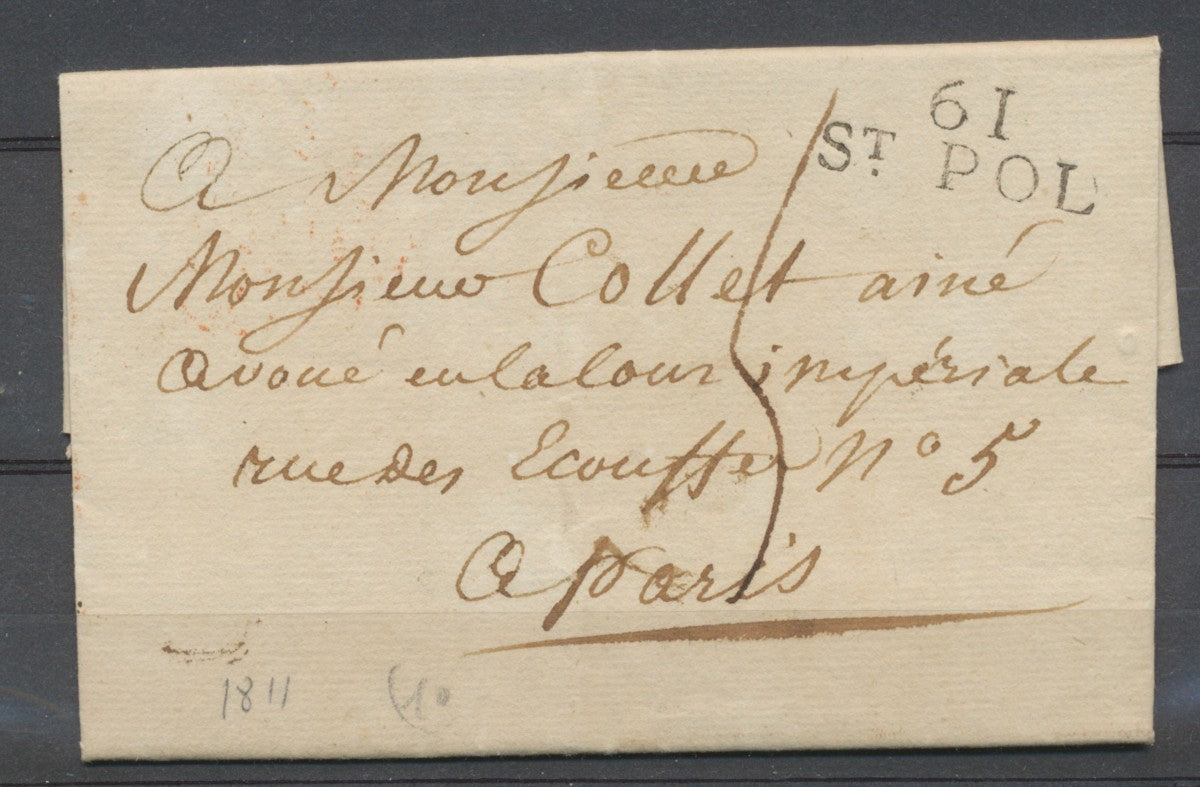 61
ST. POL
A Monsieur
Monsieur Collet ainé
avoué en la Cour impériale
rue des Ecouffes No 5
A paris
1811